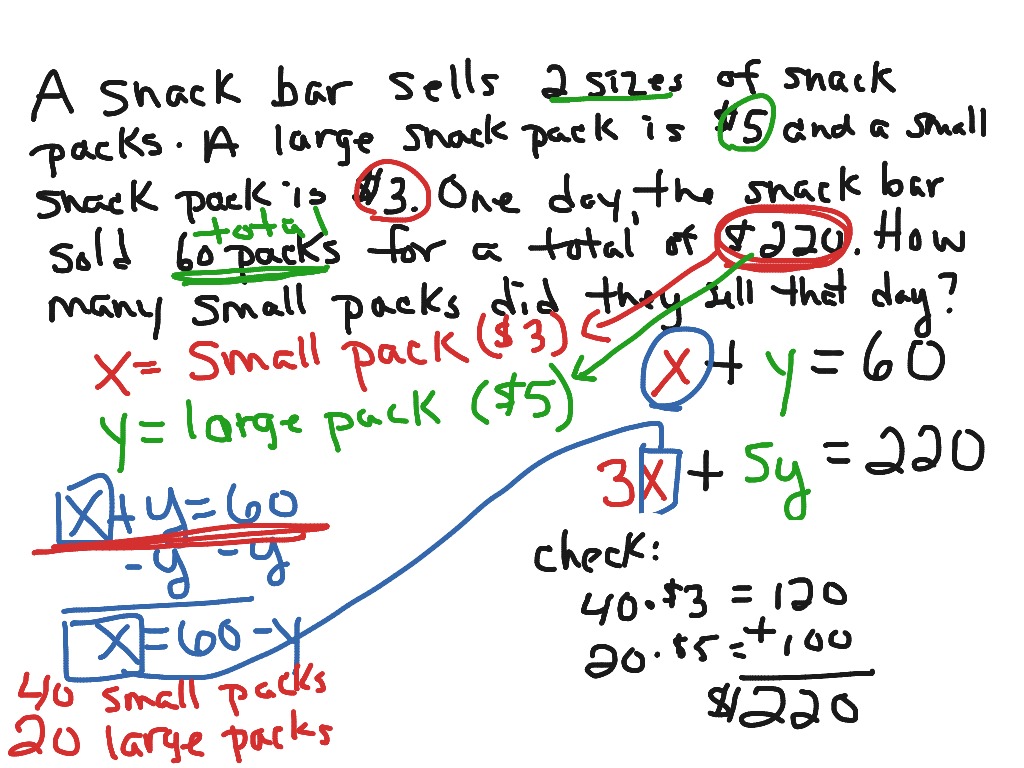 A snack bar sells 2 sizes of snack
packs. A large snack pack is $5 and a small
snack pack is $3. One day, the snack bar
total
sold 60 packs for a total of $220. How
many small packs did they sell that day?
x = small pack ($3)
y = large pack ($5)
x + y = 60
3x + 5y = 220
x + y = 60
- y - y
x = 60 - y
40 small packs
20 large packs
check:
40 · $3 = 120
20 · $5 = +100
$220